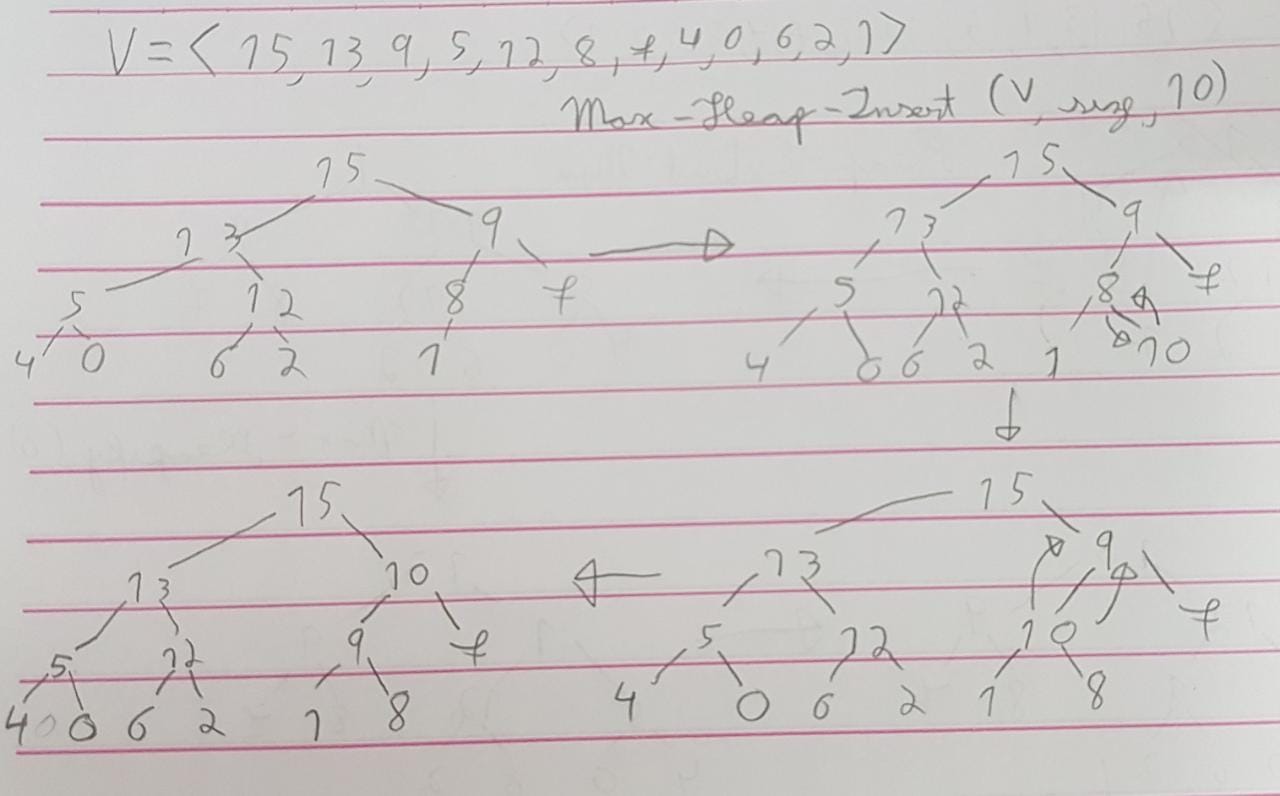 V = < 15, 13, 9, 5, 12, 8, 7, 4, 0, 6, 2, 1 >
Max-Heap-Insert (V, 10)
15
13 9
5 12 8 7
4 0 6 2 1
15
13 9
5 12 8 7
4 0 6 2 1 10
15
13 10
5 12 9 7
4 0 6 2 1 8
15
13 9
5 12 10 7
4 0 6 2 1 8